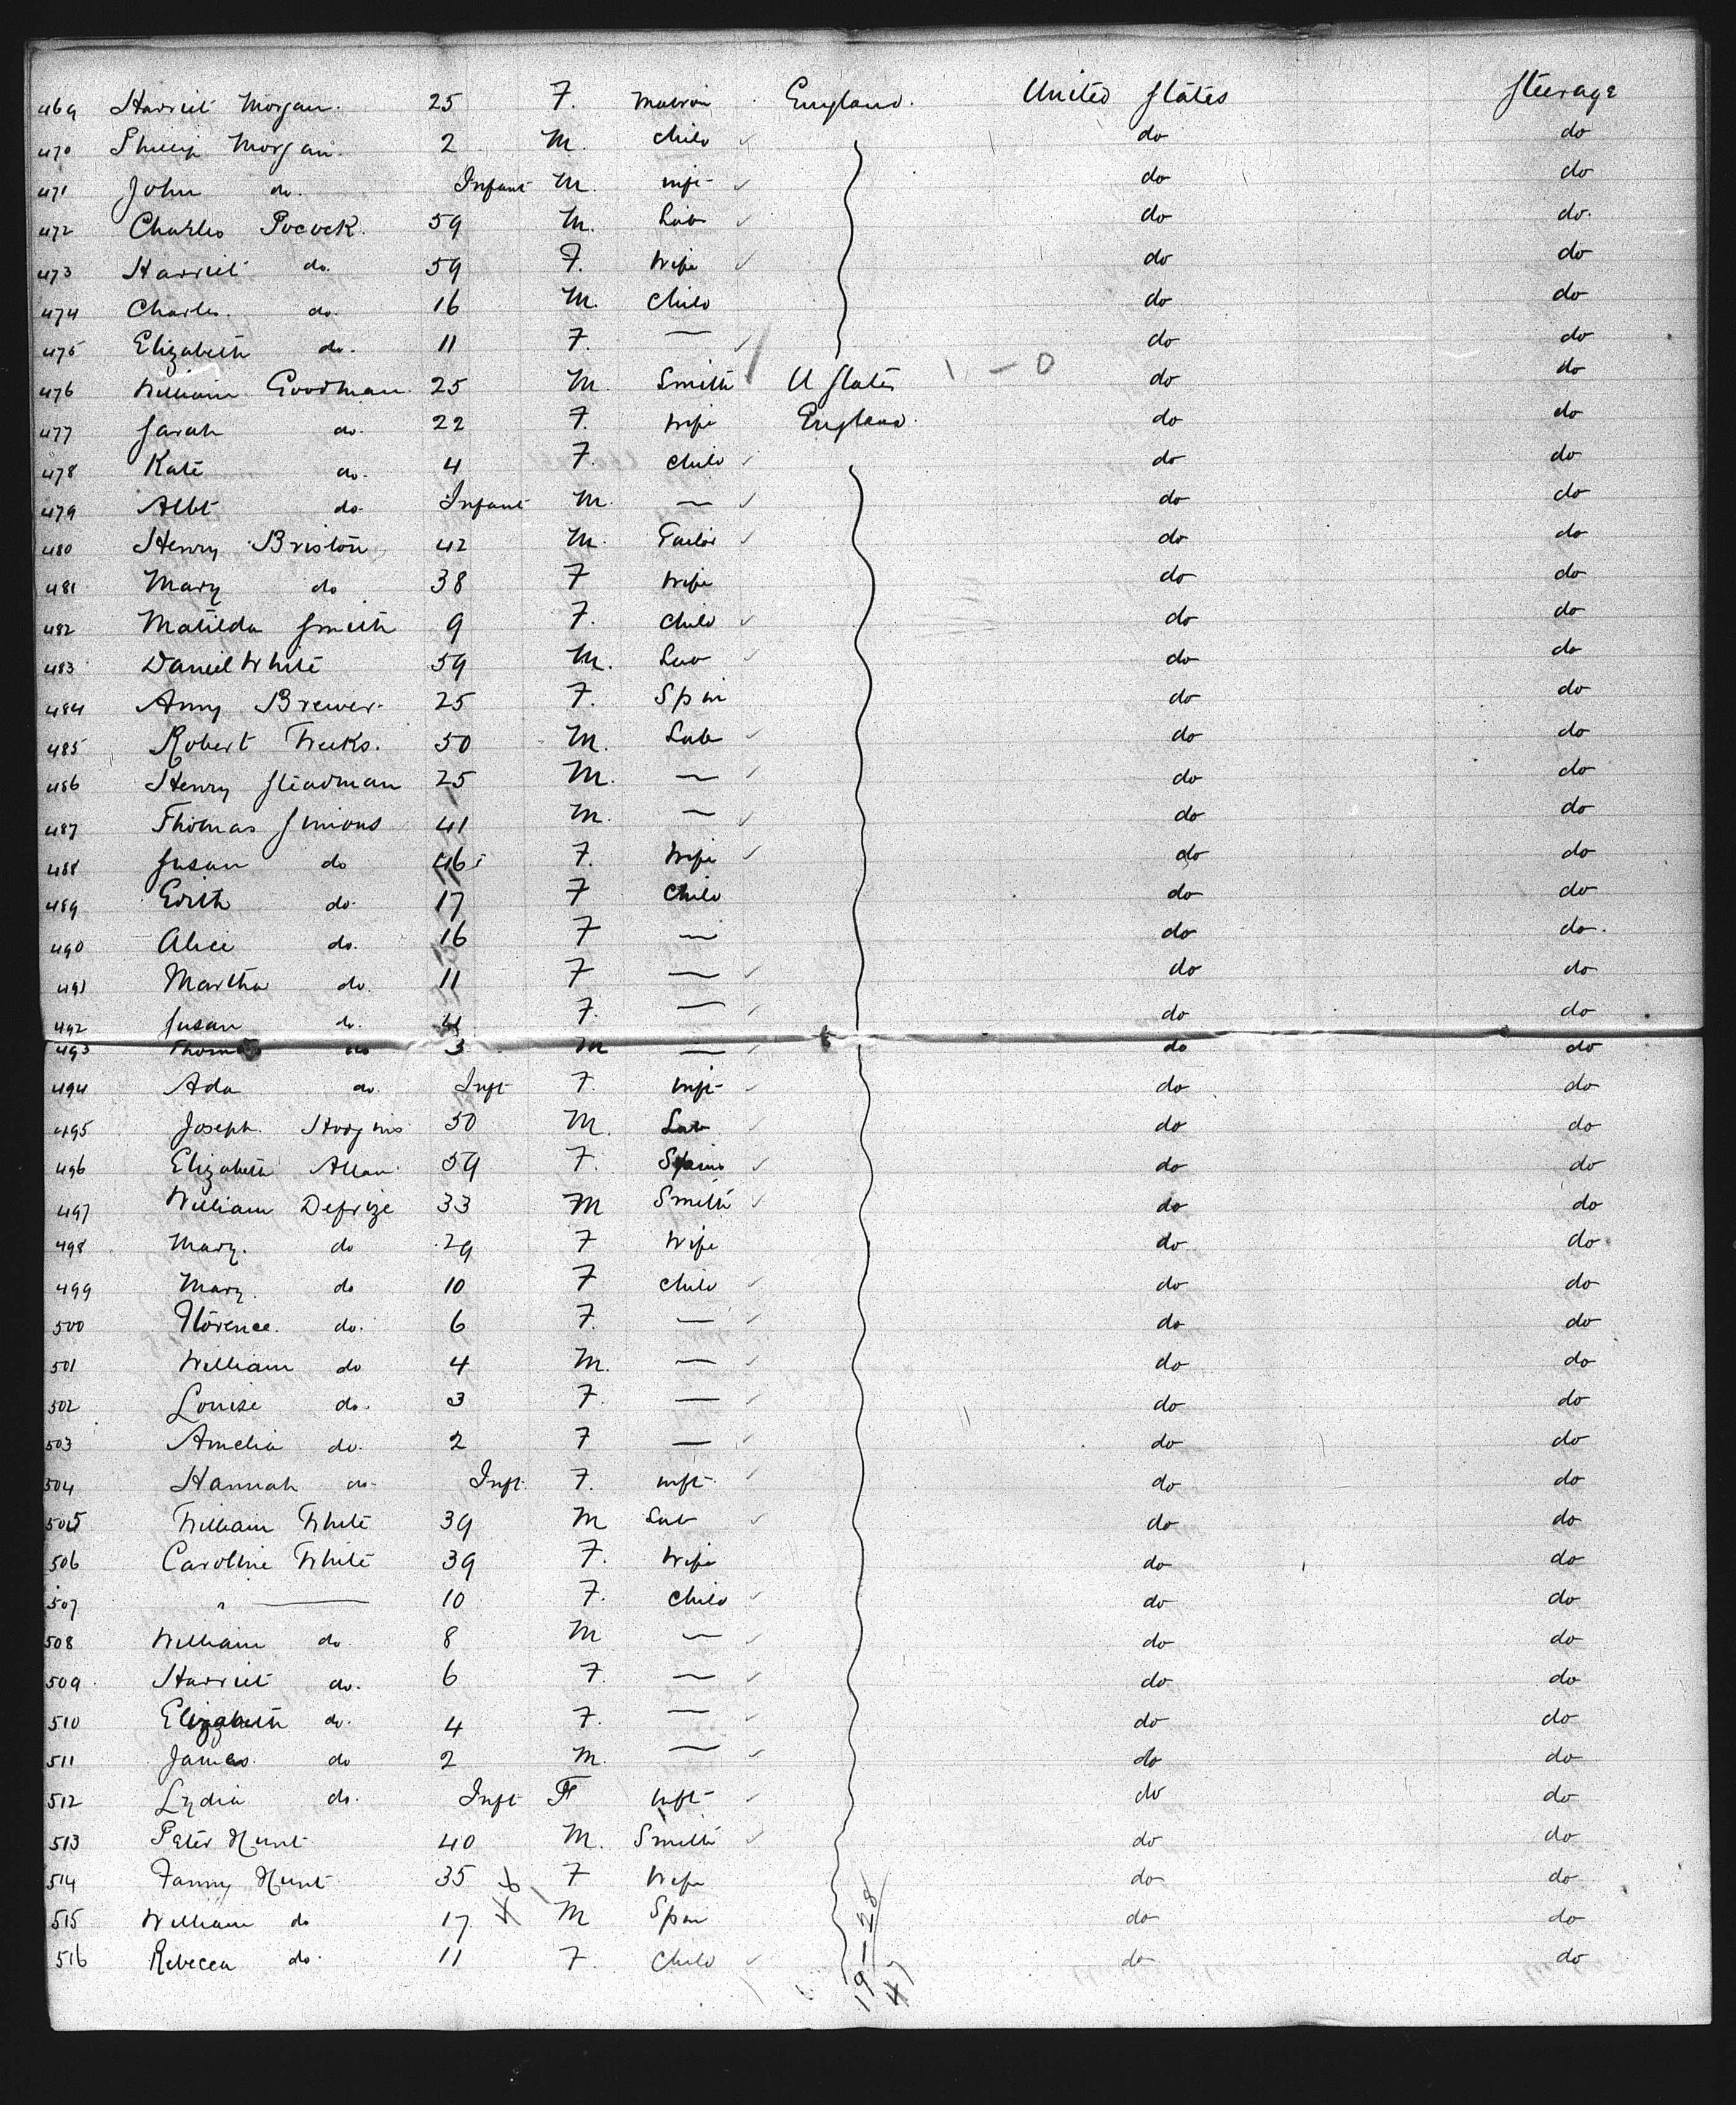 469 Harriet Morgan. 25 F. Matron England. United States Steerage
470 Philip Morgan. 2 M. Child do do
471 John do. Infant M. inft do do
472 Charles Pocock. 59 M. Lab do do.
473 Harriet do. 59 F. Wife do do
474 Charles. do. 16 M. Child do do
475 Elizabeth do. 11 F. — do do
476 William Goodman 25 M. Smith U States 1 - 0 do do
477 Sarah do. 22 F. Wife England. do do
478 Kate do. 4 F. Child do do
479 Albt do Infant M. — do do
480 Henry Briston 42 M. Tailor do do
481 Mary do 38 F Wife do do
482 Matilda Smith 9 F. Child do do
483 Daniel White 59 M. Lab do do
484 Amy Brewer. 25 F. Spin do do
485 Robert Weeks. 50 M. Lab do do
486 Henry Steadman 25 M. — do do
487 Thomas Simons 41 M. — do do
488 Susan do 46 F. Wife do do
489 Edith do. 17 F Child do do
490 Alice do. 16 F — do do.
491 Martha do. 11 F — do do
492 Susan do. F. — do do
493 Thomas do 3 M — do do
494 Ada do. Inft F. inft do do
495 Joseph Hodgins 50 M. Lab do do
496 Elizabeth Allan. 59 F. Spins do do
497 William Defrize 33 M Smith do do
498 Mary. do 29 F Wife do. do
499 Mary. do 10 F Child do do
500 Florence. do. 6 F. — do do
501 William do 4 M. — do do
502 Louise do. 3 F. — do do
503 Amelia do. 2 F — do do
504 Hannah do. Inft. F. inft. do do
505 William White 39 M Lab do do
506 Caroline White 39 F. Wife do do
507 " — 10 F. Child do do
508 William do 8 M — do do
509. Harriet do. 6 F. — do do
510 Elizabeth do. 4 F. — do do
511 James. do 2 M. — do do
512 Lydia do. Inft F inft do do
513 Peter Hunt 40 M. Smith do do
514 Fanny Hunt 35 F Wife do do
515 William do 17 M Spin do do
516 Rebecca do. 11 F. Child do do
19-28
47